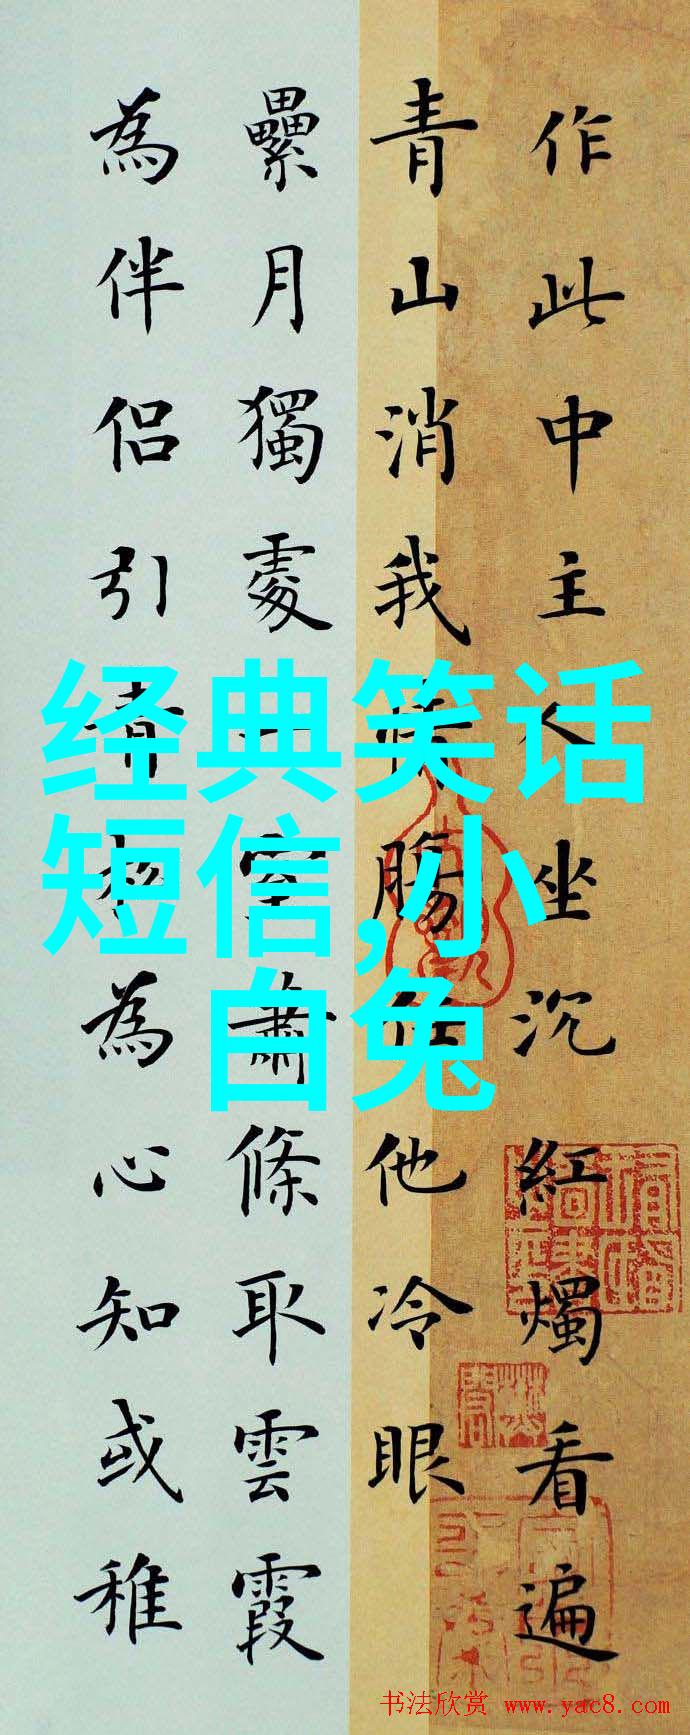 作此中主人坐沉紅燭看遍
青山消我腸任他冷眼
纍月獨處一室蕭條取雲霞
為伴侶引青松為心知或稚
经典笑话
短信,小
白兔
书法欣赏 www.yac8.com